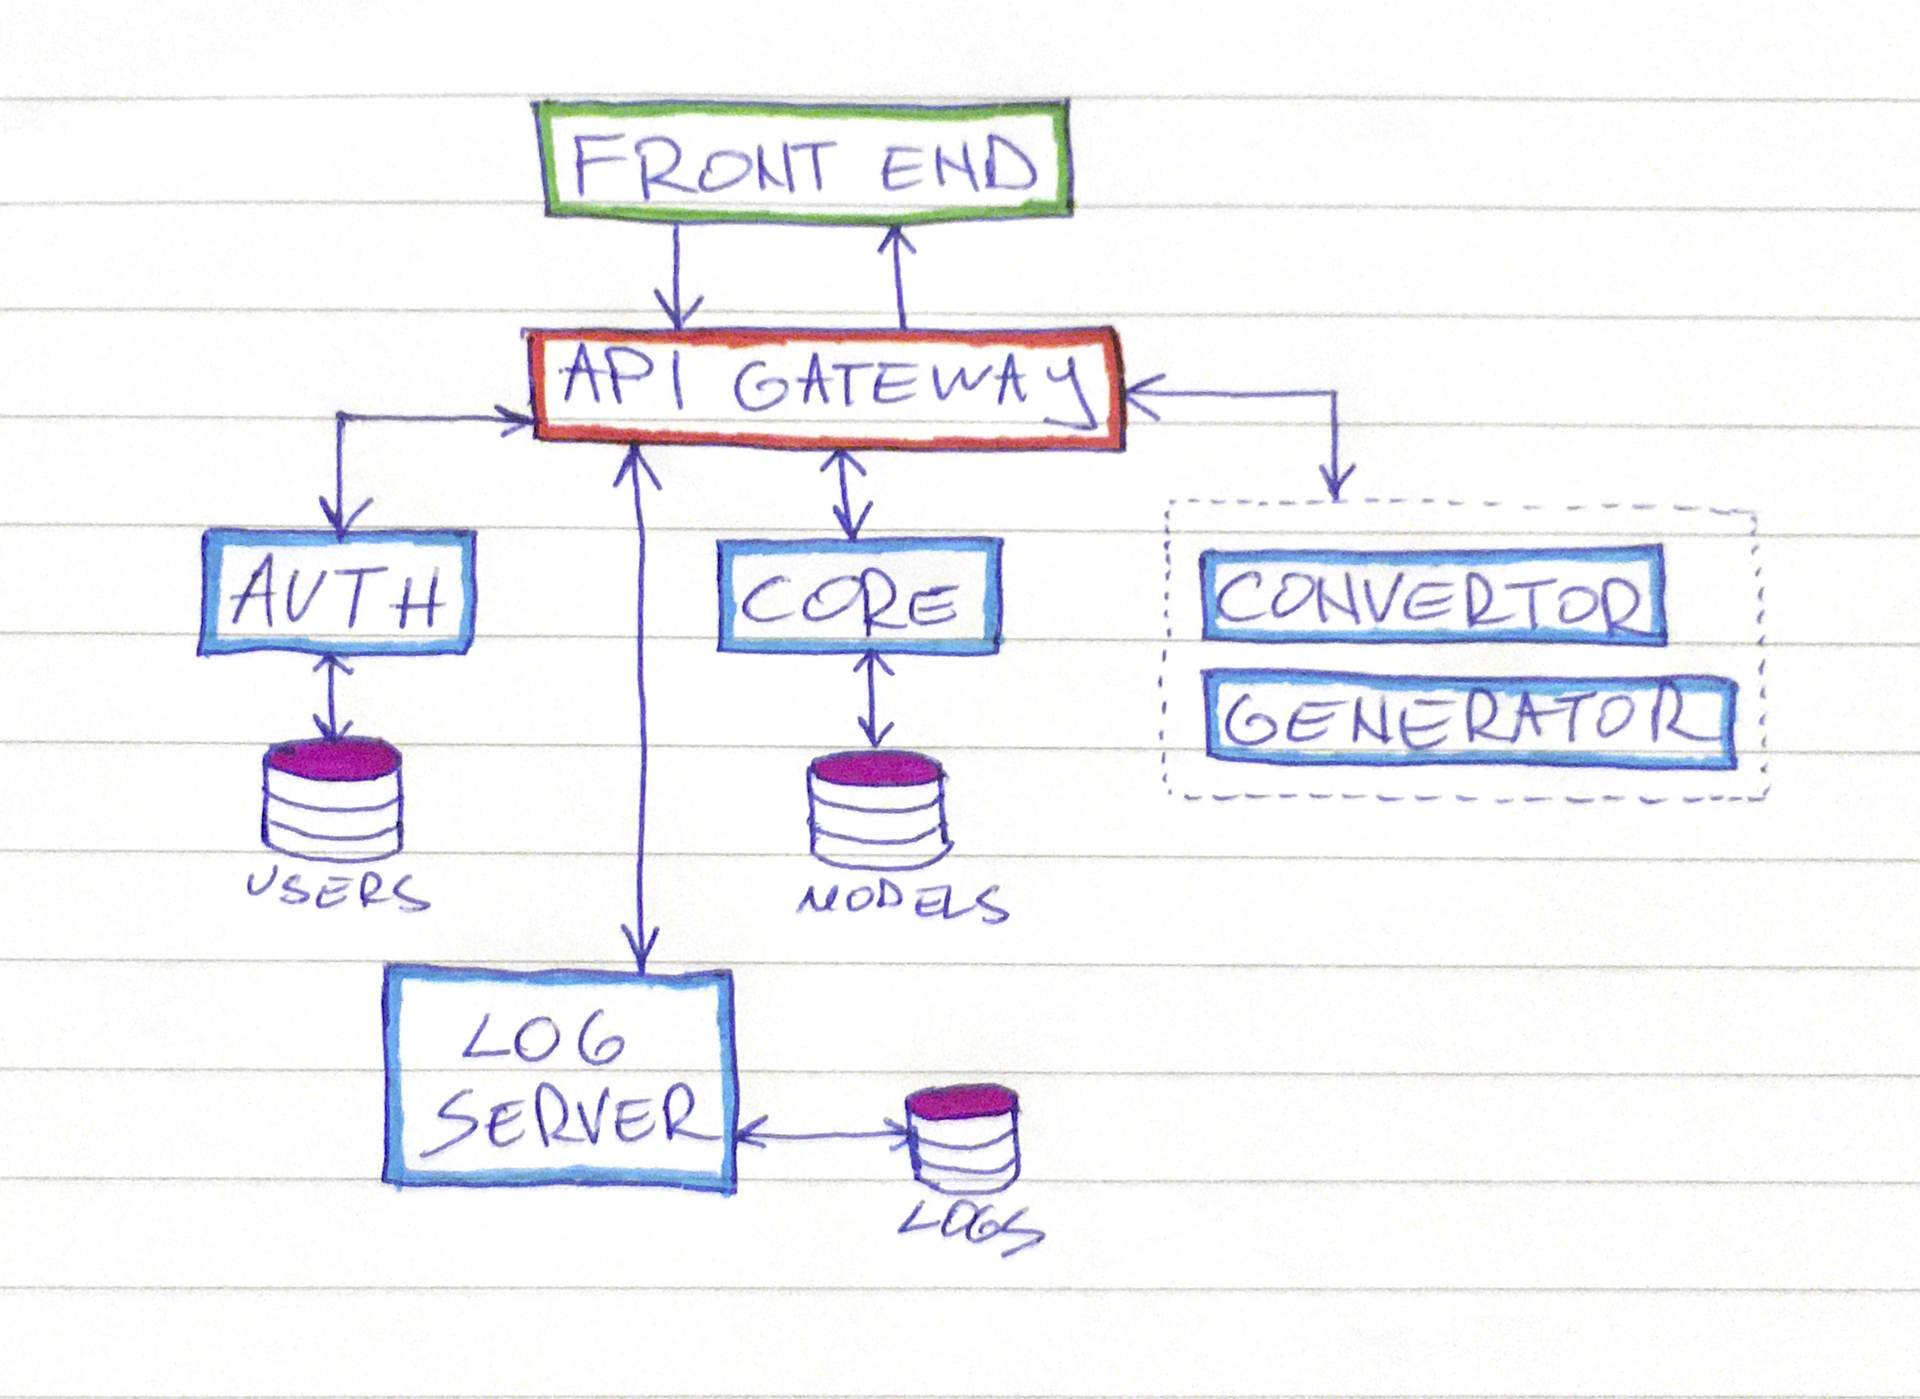 FRONT END
API GATEWAY
AUTH
CORE
CONVERTOR
GENERATOR
USERS
MODELS
LOG
SERVER
LOGS